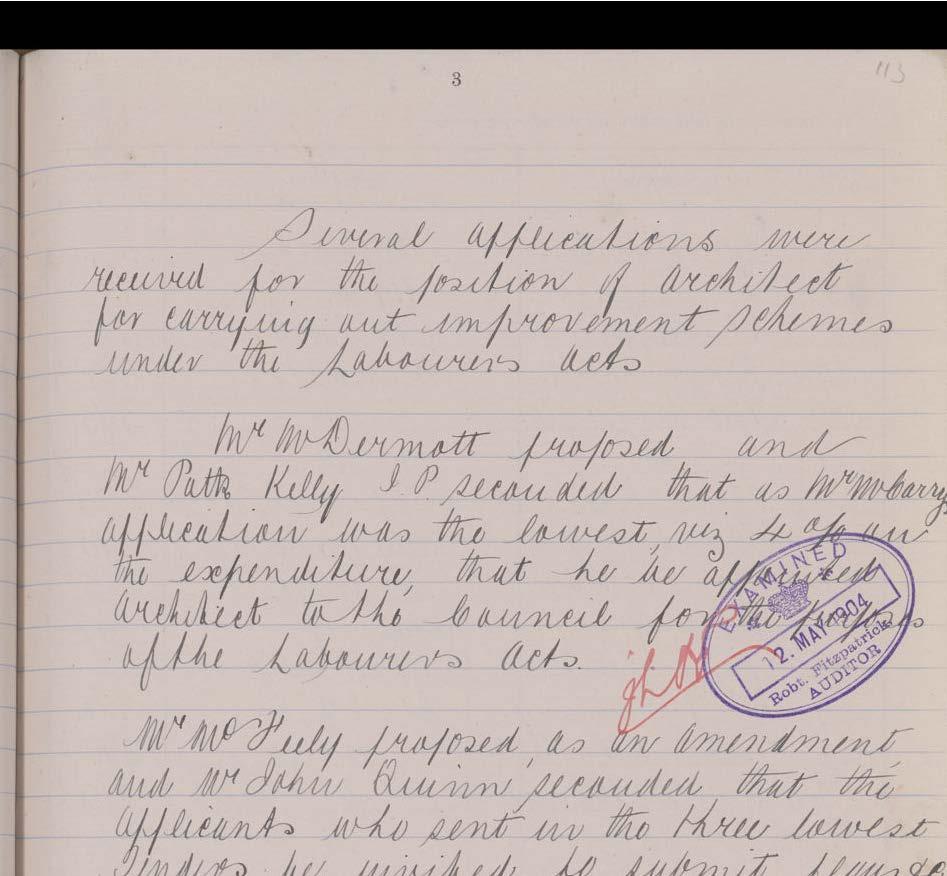 3
113
Several applications were
received for the position of Architect
for carrying out improvement schemes
under the Labourers Acts
Mr McDermott proposed and
Mr Patk Kelly J.P. seconded that as Mr McCarrys
application was the lowest, viz 4 % on
the expenditure, that he be appointed
Architect to the Council for the purposes
of the Labourers Acts.
EXAMINED
12. MAY 1904
Robt. Fitzpatrick,
AUDITOR
Mr McFeely proposed, as an amendment,
and Mr John Quinn seconded that the
applicants who sent in the three lowest
Tenders be invited to submit plans &c